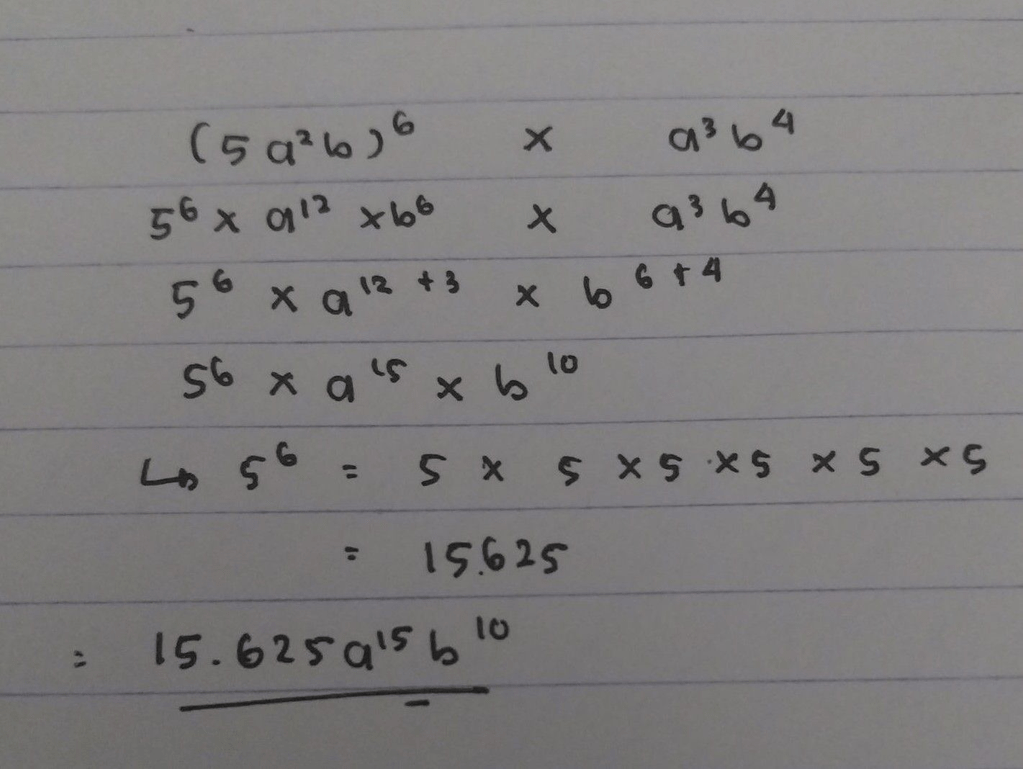 (5a²b)⁶ × a³b⁴
5⁶ × a¹² × b⁶ × a³b⁴
5⁶ × a¹² ⁺ ³ × b⁶ ⁺ ⁴
5⁶ × a¹⁵ × b¹⁰
↳ 5⁶ = 5 × 5 × 5 × 5 × 5 × 5
= 15.625
= 15.625a¹⁵b¹⁰